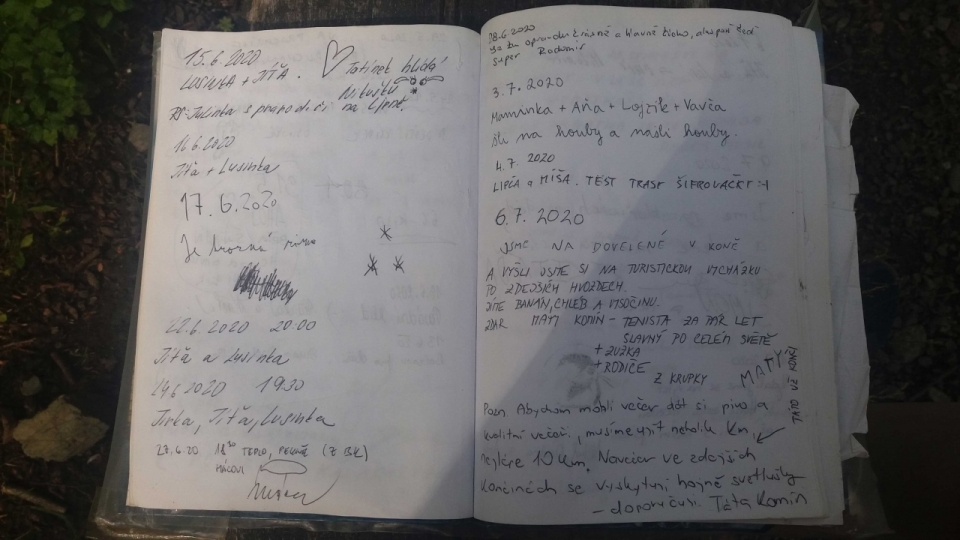 15.6.2020
LUSINKA + JÍŤA.
Tatínek hlídá
Nikušku
PS: Julinka s prarodiči na Lipně
16.6.2020
Jíťa + Lusinka
17.6.2020
Je hrozná zima
20:00
Jíťa a Lusinka
19:30
Jirka, Jíťa, Lusinka
TEPLO, PĚKNĚ (Z BK)
MÁCOVI
28.6.2020
Je tu opravdu krásně a hlavně ticho,
super Radomír
3.7.2020
Maminka + Aňa + Lojzík + Vavča
šli na houby a našli houby.
4.7.2020
LIPČA a MÍŠA. TEST TRASY ŠIFROVAČKY :-)
6.7.2020
JSME NA DOVELENÉ V KONĚ
A VYŠLI JSME SI NA TURISTICKOU VYCHÁZKU
PO ZDEJŠÍCH HVOZDECH.
JÍTE BANÁN, CHLEB A VYSOČINU.
ZDAR MATY KOMÍN - TENISTA ZA PÁR LET
SLAVNÝ PO CELÉM SVĚTĚ
+ ZUZKA
+ RODIČE
Z KRUPKY
MATY
Pozn. Abychom mohli večer dát si pivo a
kvalitní večeři, musíme ujít několik km,
nejlépe 10 km. Navečer ve zdejších
končinách se vyskytují hojně světlušky
- doporučuji. Táta Komín